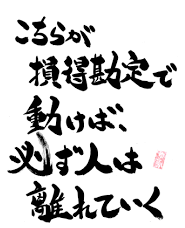 こちらが
損得勘定で
動けば、
必ず人は
離れていく